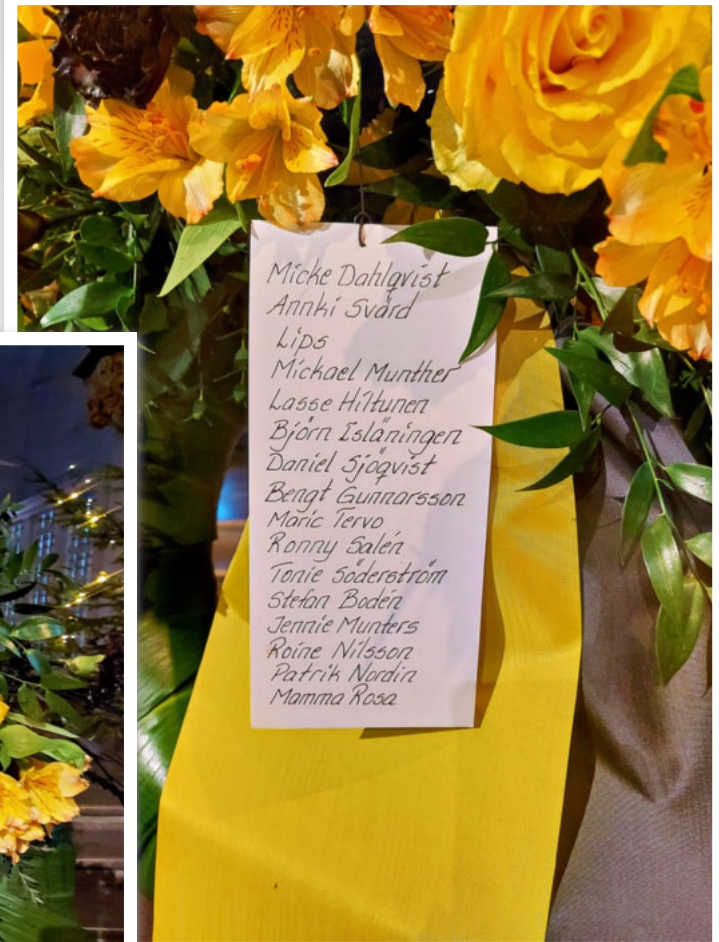 Micke Dahlqvist
Annki Svärd
Lips
Mickael Munther
Lasse Hiltunen
Björn Isläningen
Daniel Sjöqvist
Bengt Gunnarsson
Maric Tervo
Ronny Salén
Tonie Söderström
Stefan Bodén
Jennie Munters
Roine Nilsson
Patrik Nordin
Mamma Rosa